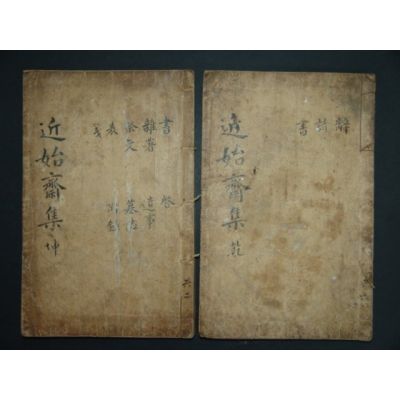 辭
詩
書
近始齋集 乾
書
雜著 遺事
祭文 墓
表 附錄
近始齋集 坤
共二